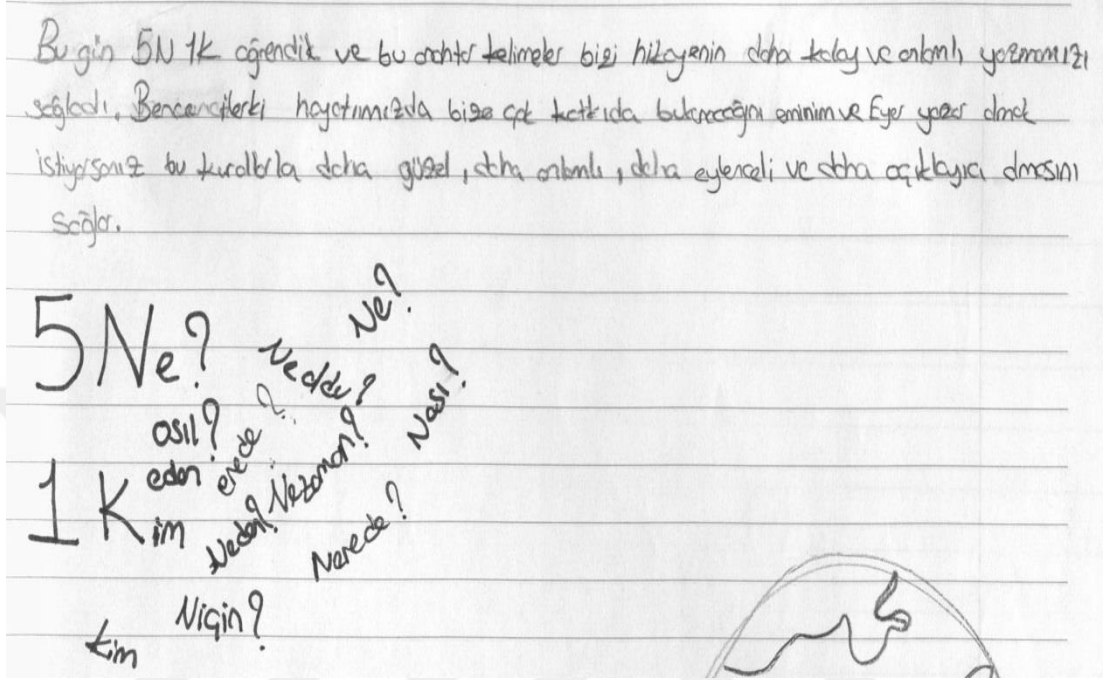 Bu gün 5N 1K öğrendik ve bu anahtar kelimeler bizi hikayenin daha kolay ve anlamlı yazmamızı
sağladı. Bence ilerki hayatımızda bize çok katkıda bulunacağını eminim ve Eyer yazar olmak
istiyorsanız bu kurallarla daha güzel, daha anlamlı, daha eylenceli ve daha açıklayıcı olmasını
sağlar.
Ne?
5Ne? Ne oldu?
Nası?
osıl?
erede?
eden
Ne zaman?
1Kim
Neden?
Nerede?
Niçin?
Kim